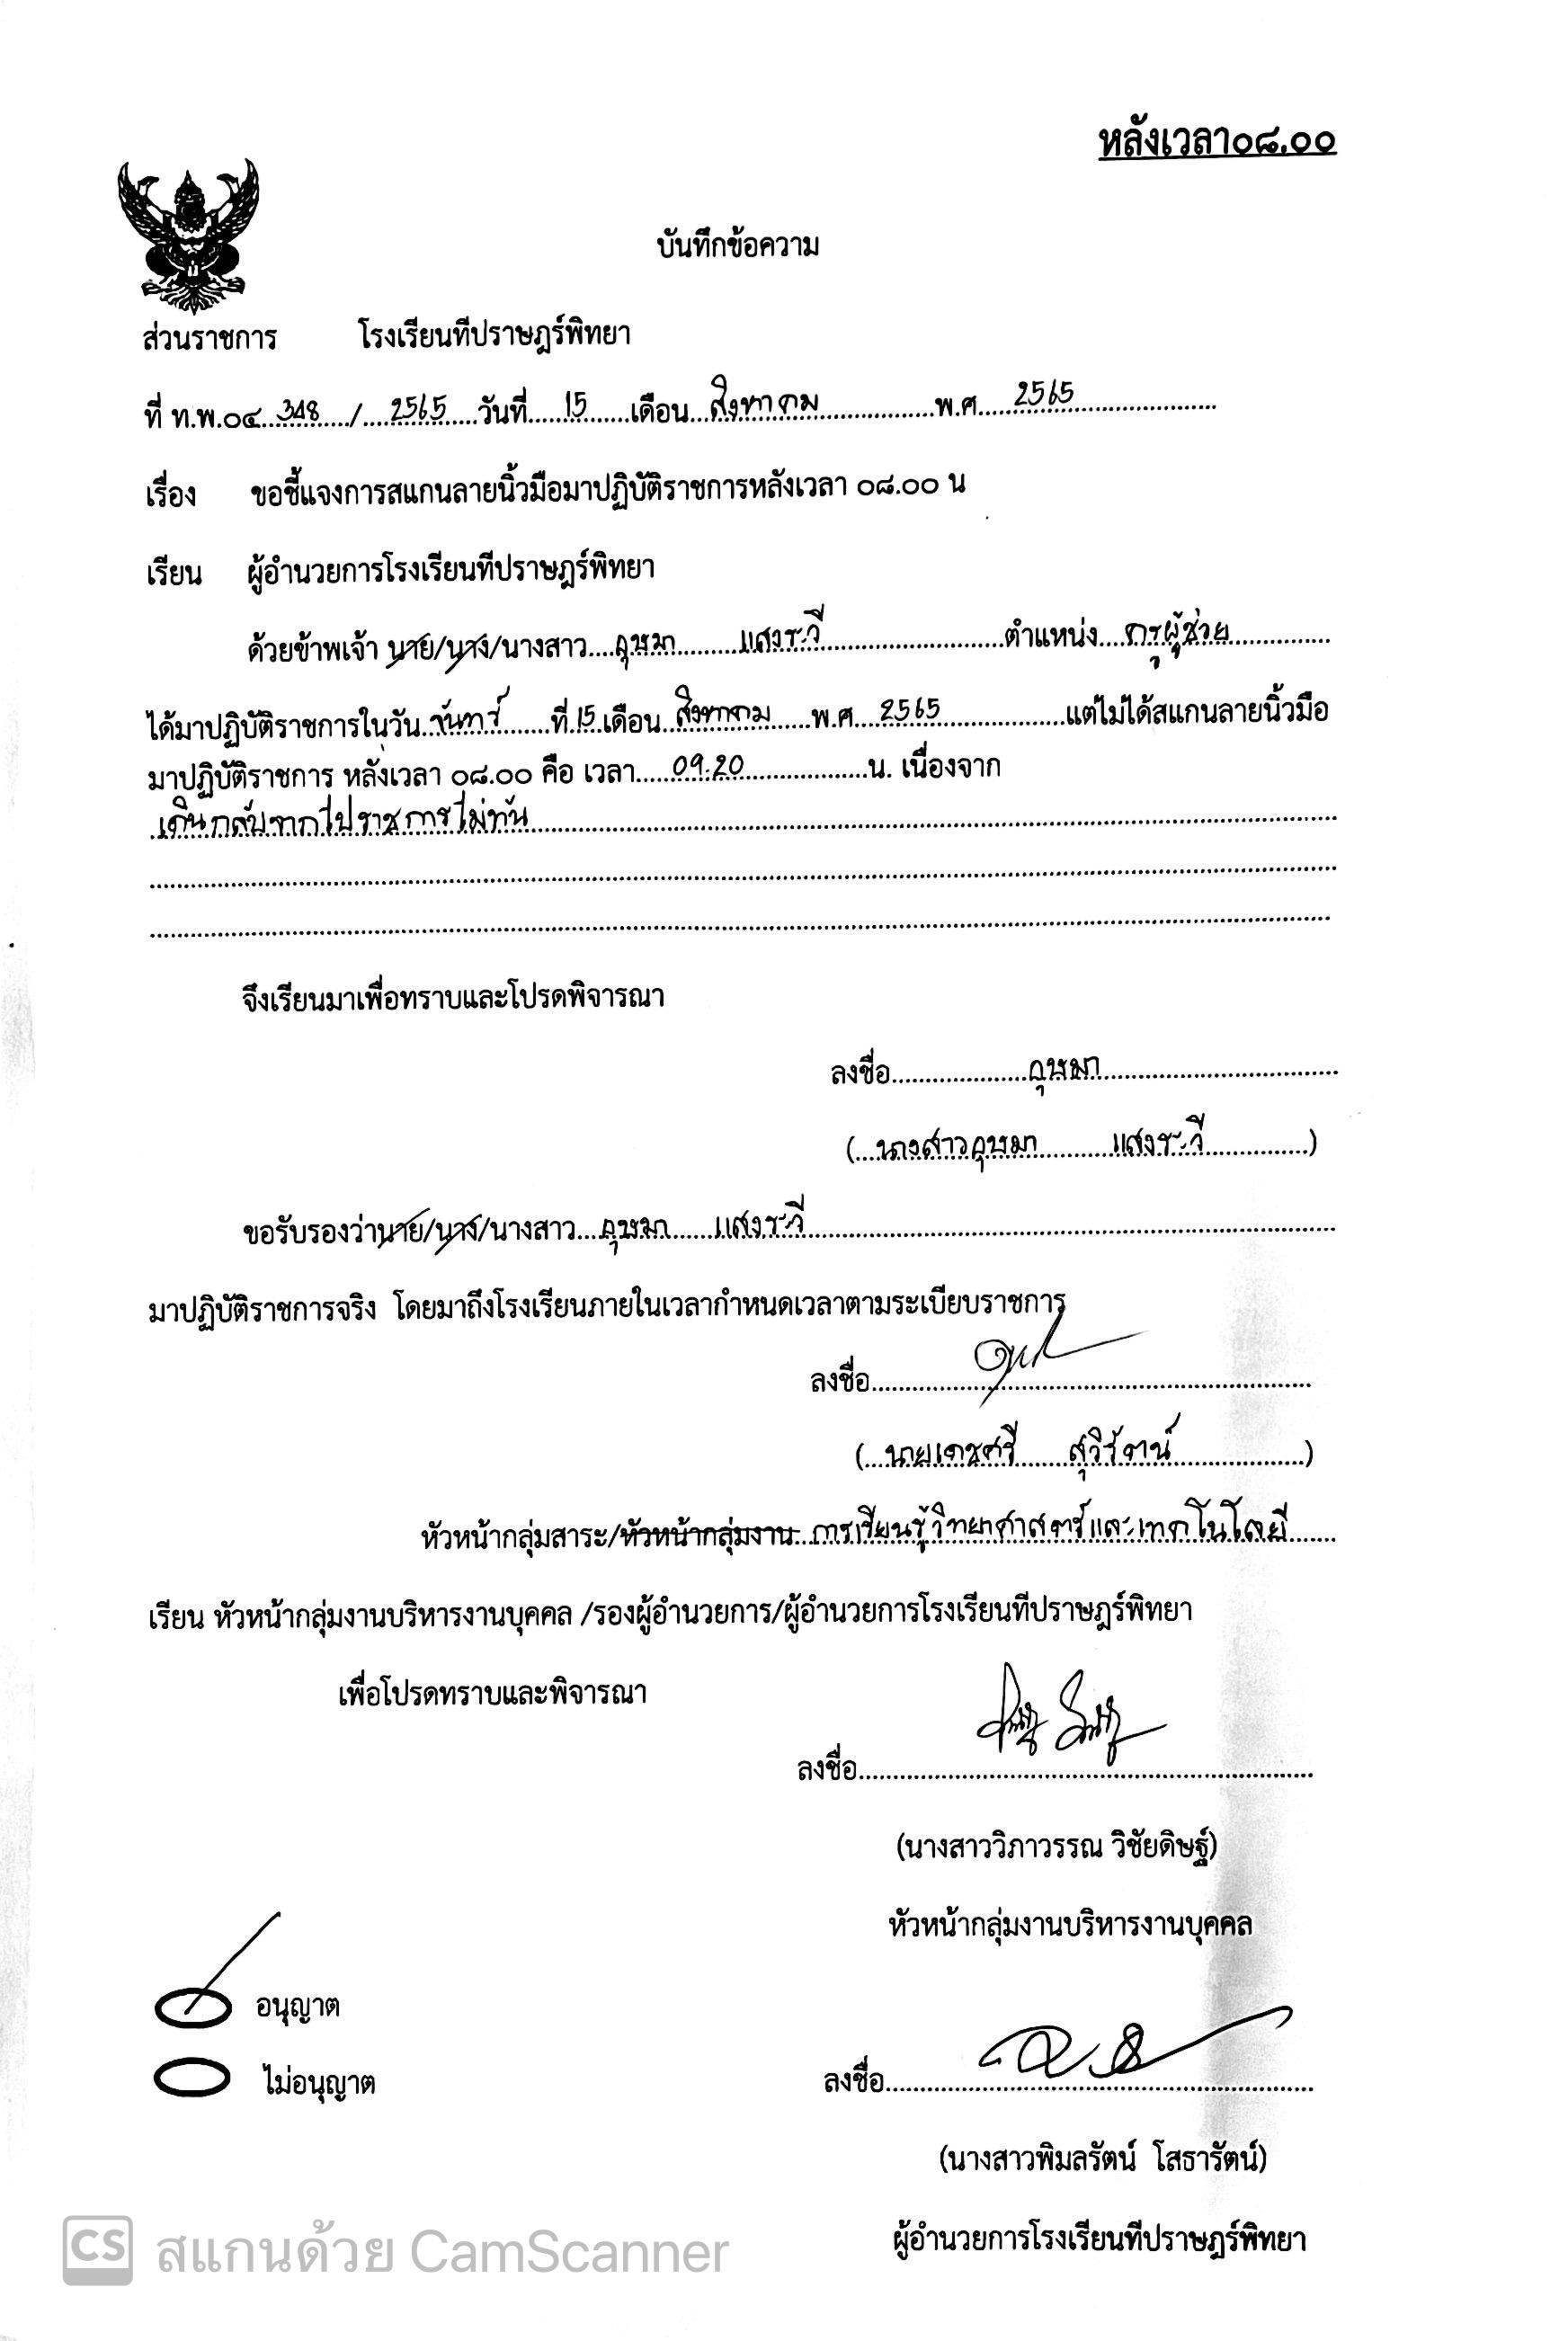 หลังเวลา๐๘.๐๐
บันทึกข้อความ
ส่วนราชการ โรงเรียนทีปราษฎร์พิทยา
ที่ ท.พ.๐๔ 348 / 2565 วันที่ 15 เดือน สิงหาคม พ.ศ. 2565
เรื่อง ขอชี้แจงการสแกนลายนิ้วมือมาปฏิบัติราชการหลังเวลา ๐๘.๐๐ น
เรียน ผู้อำนวยการโรงเรียนทีปราษฎร์พิทยา
ด้วยข้าพเจ้า นาย/นาง/นางสาว แสงระวี ตำแหน่ง ครูผู้ช่วย
ได้มาปฏิบัติราชการในวัน จันทร์ ที่ 15 เดือน สิงหาคม พ.ศ. 2565 แต่ไม่ได้สแกนลายนิ้วมือ
มาปฏิบัติราชการ หลังเวลา ๐๘.๐๐ คือ เวลา 09.20 น. เนื่องจาก
กลับจากไปราชการไม่ทัน
จึงเรียนมาเพื่อทราบและโปรดพิจารณา
ลงชื่อ
(นางสาว แสงระวี)
ขอรับรองว่านาย/นาง/นางสาว แสงระวี
มาปฏิบัติราชการจริง โดยมาถึงโรงเรียนภายในเวลากำหนดเวลาตามระเบียบราชการ
ลงชื่อ
(นาย สุวิรัตน์)
หัวหน้ากลุ่มสาระ/หัวหน้ากลุ่มงาน การเรียนรู้วิทยาศาสตร์และเทคโนโลยี
เรียน หัวหน้ากลุ่มงานบริหารงานบุคคล /รองผู้อำนวยการ/ผู้อำนวยการโรงเรียนทีปราษฎร์พิทยา
เพื่อโปรดทราบและพิจารณา
ลงชื่อ
(นางสาววิภาวรรณ วิชัยดิษฐ์)
หัวหน้ากลุ่มงานบริหารงานบุคคล
อนุญาต
ไม่อนุญาต
ลงชื่อ
(นางสาวพิมลรัตน์ โสธารัตน์)
ผู้อำนวยการโรงเรียนทีปราษฎร์พิทยา
CS สแกนด้วย CamScanner